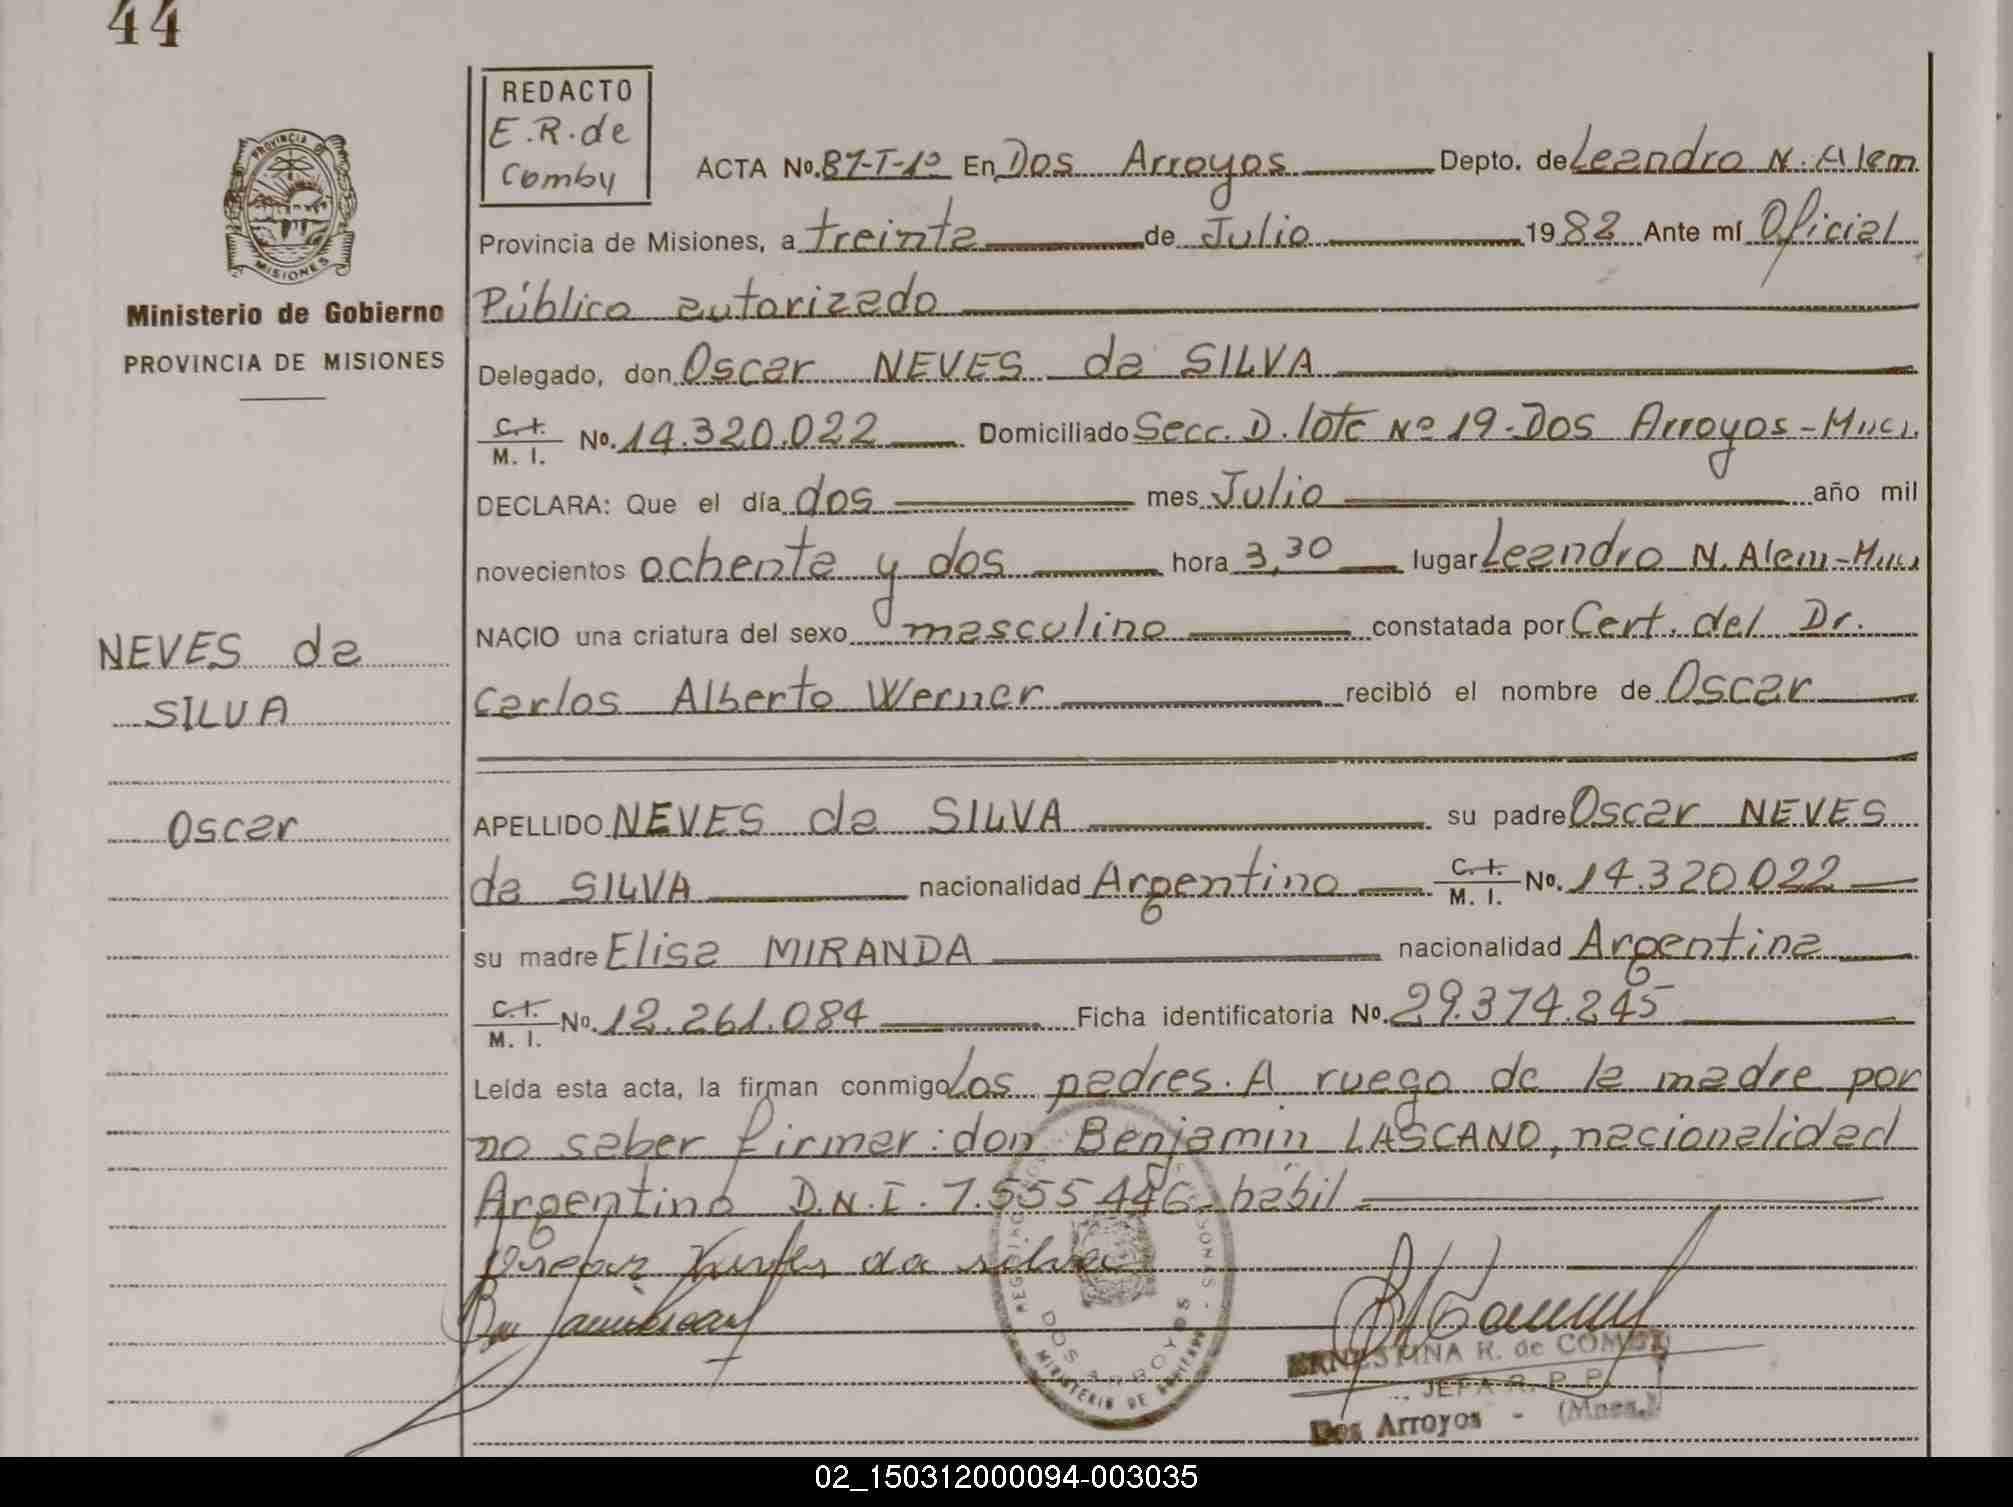 44
REDACTO
E.R.de
Comby
ACTA No. 87-T-1º En Dos Arroyos Depto. de Leandro N. Alem
Provincia de Misiones, a treinta de Julio 1982 Ante mí Oficial
PROVINCIA DE
MISIONES
Ministerio de Gobierno
PROVINCIA DE MISIONES
Público autorizado
Delegado, don Oscar NEVES da SILVA
C.I. M. I. No. 14.320.022 Domiciliado Secc. D. lote Nº 19-Dos Arroyos-
DECLARA: Que el día dos mes Julio año mil
novecientos ochenta y dos hora 3,30 lugar Leandro N. Alem-
NACIO una criatura del sexo masculino constatada por Cert. del Dr.
Carlos Alberto Werner recibió el nombre de Oscar
NEVES da
SILVA
Oscar
APELLIDO NEVES da SILVA su padre Oscar NEVES
da SILVA nacionalidad Argentino C.I. M. I. No. 14.320.022
su madre Elisa MIRANDA nacionalidad Argentina
C.I. M. I. No. 12.261.084 Ficha identificatoria No. 29.374.245
Leída esta acta, la firman conmigo los padres. A ruego de la madre por
no saber firmar: don Benjamin LASCANO, nacionalidad
Argentino D.N.I. 7.555.446 habil
da silva
DOS ARROYOS
MINISTERIO DE GOBIERNO
ERNESTINA R. de COMBY
JEFA R. P. P.
Dos Arroyos - (Mnes.)
02_150312000094-003035